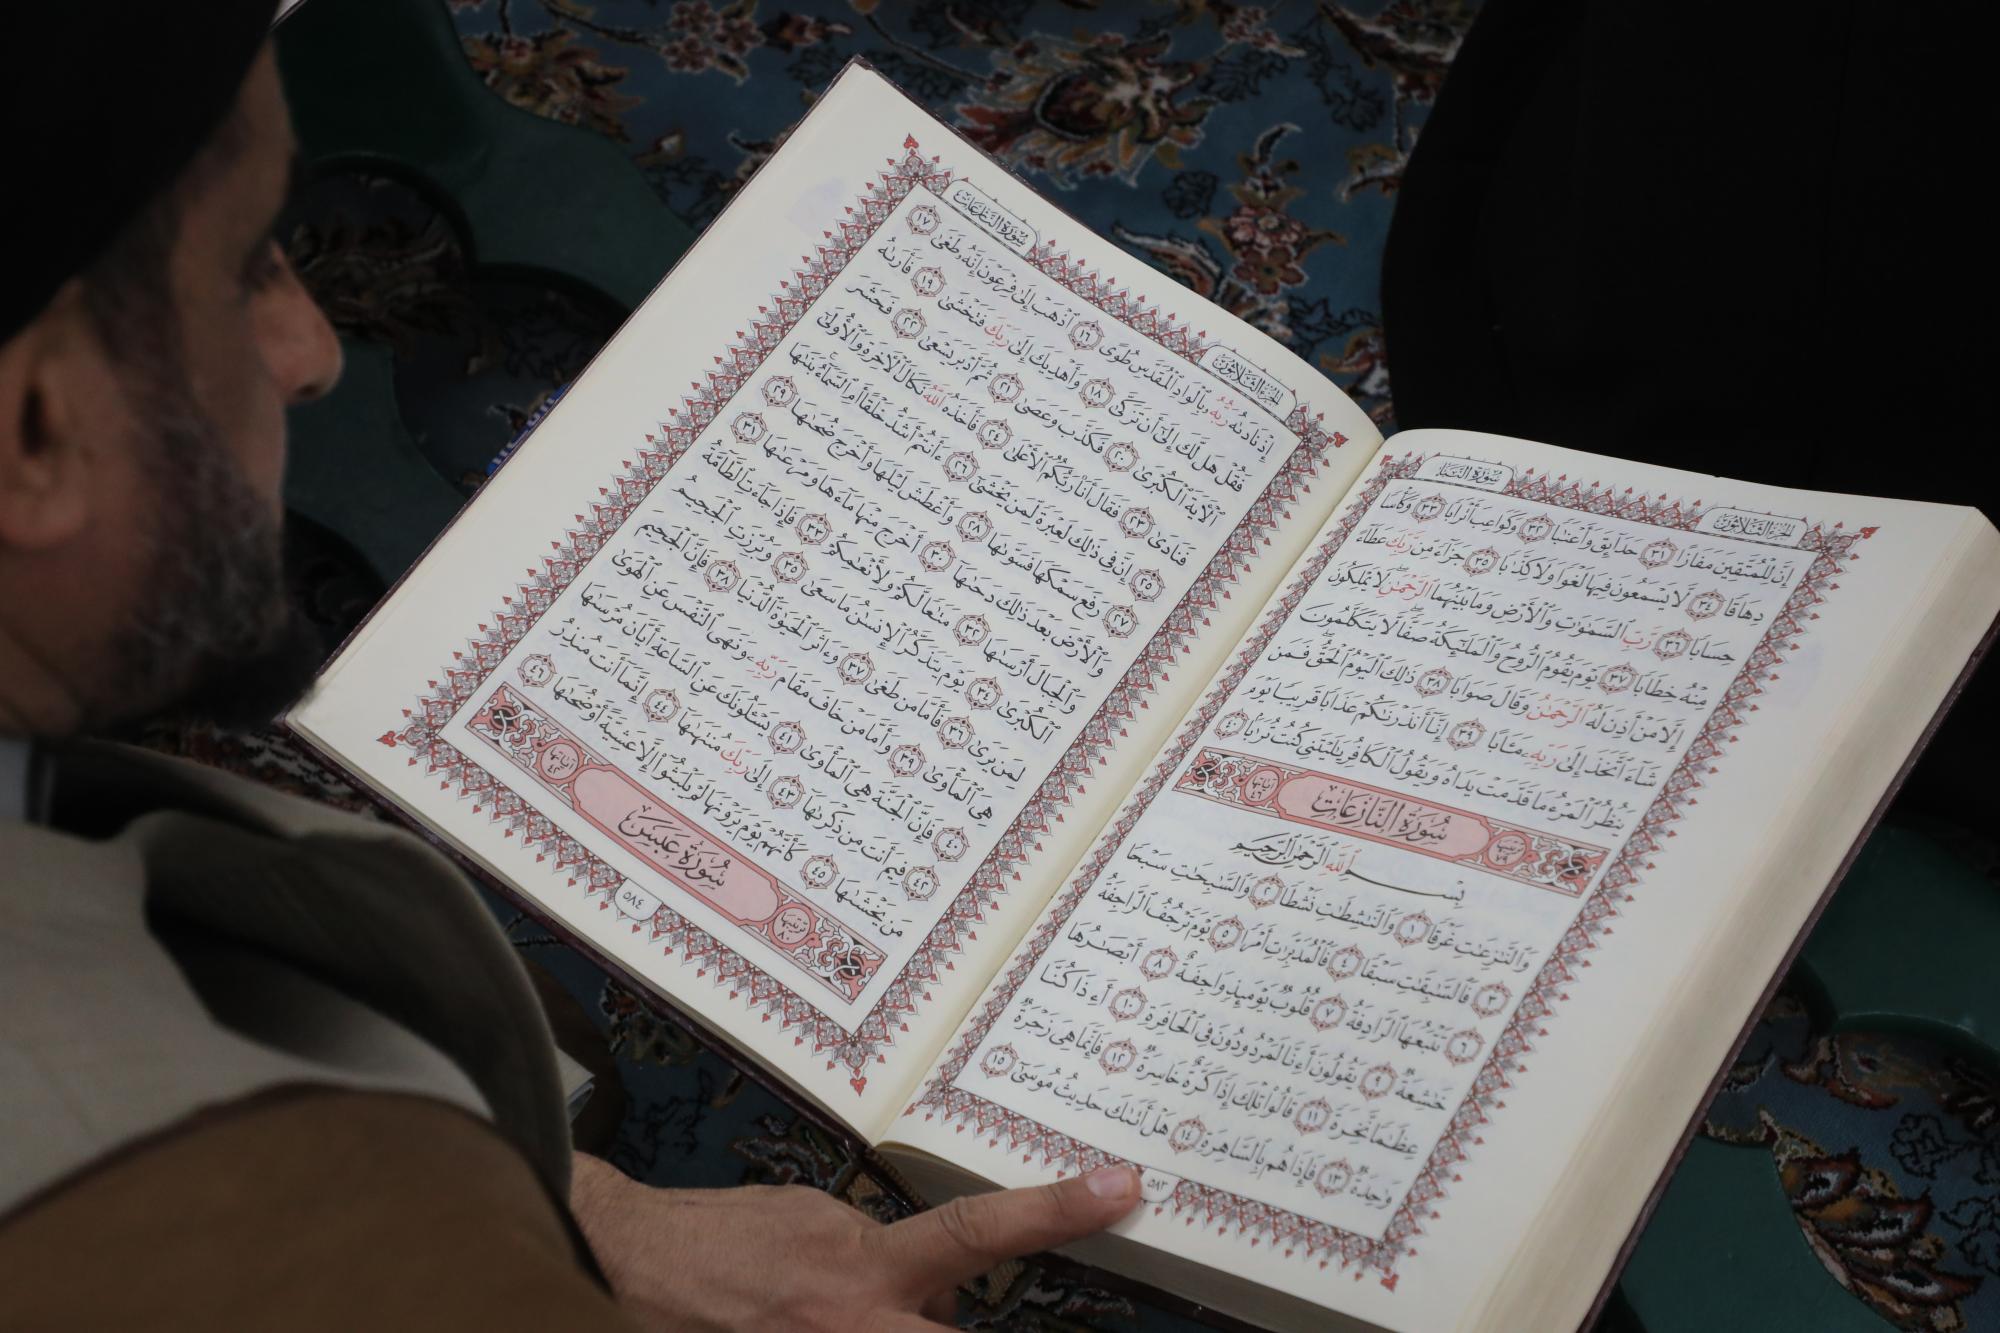 الجُزْءُ الثَّلَاثُونَ سُورَةُ النَّبَإِ
إِنَّ لِلْمُتَّقِينَ مَفَازًا ٣١ حَدَآئِقَ وَأَعْنَٰبًا ٣٢ وَكَوَاعِبَ أَتْرَابًا ٣٣ وَكَأْسًا
دِهَاقًا ٣٤ لَّا يَسْمَعُونَ فِيهَا لَغْوًا وَلَا كِذَّٰبًا ٣٥ جَزَآءً مِّن رَّبِّكَ عَطَآءً
حِسَابًا ٣٦ رَّبِّ ٱلسَّمَٰوَٰتِ وَٱلْأَرْضِ وَمَا بَيْنَهُمَا ٱلرَّحْمَٰنِ لَا يَمْلِكُونَ
مِنْهُ خِطَابًا ٣٧ يَوْمَ يَقُومُ ٱلرُّوحُ وَٱلْمَلَٰٓئِكَةُ صَفًّا لَّا يَتَكَلَّمُونَ
إِلَّا مَنْ أَذِنَ لَهُ ٱلرَّحْمَٰنُ وَقَالَ صَوَابًا ٣٨ ذَٰلِكَ ٱلْيَوْمُ ٱلْحَقُّ فَمَن
شَآءَ ٱتَّخَذَ إِلَىٰ رَبِّهِۦ مَـَٔابًا ٣٩ إِنَّآ أَنذَرْنَٰكُمْ عَذَابًا قَرِيبًا يَوْمَ
يَنظُرُ ٱلْمَرْءُ مَا قَدَّمَتْ يَدَاهُ وَيَقُولُ ٱلْكَافِرُ يَٰلَيْتَنِى كُنتُ تُرَٰبًۢا ٤٠
ترتيبها ٧٩ سُورَةُ النَّازِعَاتِ آياتها ٤٦
بِسْمِ ٱللَّهِ ٱلرَّحْمَٰنِ ٱلرَّحِيمِ
وَٱلنَّٰزِعَٰتِ غَرْقًا ١ وَٱلنَّٰشِطَٰتِ نَشْطًا ٢ وَٱلسَّٰبِحَٰتِ سَبْحًا
٣ فَٱلسَّٰبِقَٰتِ سَبْقًا ٤ فَٱلْمُدَبِّرَٰتِ أَمْرًا ٥ يَوْمَ تَرْجُفُ ٱلرَّاجِفَةُ
٦ تَتْبَعُهَا ٱلرَّادِفَةُ ٧ قُلُوبٌ يَوْمَئِذٍ وَاجِفَةٌ ٨ أَبْصَٰرُهَا
خَٰشِعَةٌ ٩ يَقُولُونَ أَءِنَّا لَمَرْدُودُونَ فِى ٱلْحَافِرَةِ ١٠ أَءِذَا كُنَّا
عِظَٰمًا نَّخِرَةً ١١ قَالُوا۟ تِلْكَ إِذًا كَرَّةٌ خَاسِرَةٌ ١٢ فَإِنَّمَا هِىَ زَجْرَةٌ
وَٰحِدَةٌ ١٣ فَإِذَا هُم بِٱلسَّاهِرَةِ ١٤ هَلْ أَتَىٰكَ حَدِيثُ مُوسَىٰٓ ١٥
٥٨٣
الجُزْءُ الثَّلَاثُونَ سُورَةُ النَّازِعَاتِ
إِذْ نَادَىٰهُ رَبُّهُۥ بِٱلْوَادِ ٱلْمُقَدَّسِ طُوًى ١٦ ٱذْهَبْ إِلَىٰ فِرْعَوْنَ إِنَّهُۥ طَغَىٰ ١٧
فَقُلْ هَل لَّكَ إِلَىٰٓ أَن تَزَكَّىٰ ١٨ وَأَهْدِيَكَ إِلَىٰ رَبِّكَ فَتَخْشَىٰ ١٩ فَأَرَىٰهُ
ٱلْأٓيَةَ ٱلْكُبْرَىٰ ٢٠ فَكَذَّبَ وَعَصَىٰ ٢١ ثُمَّ أَدْبَرَ يَسْعَىٰ ٢٢ فَحَشَرَ
فَنَادَىٰ ٢٣ فَقَالَ أَنَا۠ رَبُّكُمُ ٱلْأَعْلَىٰ ٢٤ فَأَخَذَهُ ٱللَّهُ نَكَالَ ٱلْأٓخِرَةِ وَٱلْأُولَىٰٓ
٢٥ إِنَّ فِى ذَٰلِكَ لَعِبْرَةً لِّمَن يَخْشَىٰٓ ٢٦ ءَأَنتُمْ أَشَدُّ خَلْقًا أَمِ ٱلسَّمَآءُ بَنَىٰهَا
٢٧ رَفَعَ سَمْكَهَا فَسَوَّىٰهَا ٢٨ وَأَغْطَشَ لَيْلَهَا وَأَخْرَجَ ضُحَىٰهَا ٢٩
وَٱلْأَرْضَ بَعْدَ ذَٰلِكَ دَحَىٰهَآ ٣٠ أَخْرَجَ مِنْهَا مَآءَهَا وَمَرْعَىٰهَا ٣١
وَٱلْجِبَالَ أَرْسَىٰهَا ٣٢ مَتَٰعًا لَّكُمْ وَلِأَنْعَٰمِكُمْ ٣٣ فَإِذَا جَآءَتِ ٱلطَّآمَّةُ
ٱلْكُبْرَىٰ ٣٤ يَوْمَ يَتَذَكَّرُ ٱلْإِنسَٰنُ مَا سَعَىٰ ٣٥ وَبُرِّزَتِ ٱلْجَحِيمُ
لِمَن يَرَىٰ ٣٦ فَأَمَّا مَن طَغَىٰ ٣٧ وَءَاثَرَ ٱلْحَيَوٰةَ ٱلدُّنْيَا ٣٨ فَإِنَّ ٱلْجَحِيمَ
هِىَ ٱلْمَأْوَىٰ ٣٩ وَأَمَّا مَنْ خَافَ مَقَامَ رَبِّهِۦ وَنَهَى ٱلنَّفْسَ عَنِ ٱلْهَوَىٰ
٤٠ فَإِنَّ ٱلْجَنَّةَ هِىَ ٱلْمَأْوَىٰ ٤١ يَسْـَٔلُونَكَ عَنِ ٱلسَّاعَةِ أَيَّانَ مُرْسَىٰهَا
٤٢ فِيمَ أَنتَ مِن ذِكْرَىٰهَآ ٤٣ إِلَىٰ رَبِّكَ مُنتَهَىٰهَآ ٤٤ إِنَّمَآ أَنتَ مُنذِرُ
مَن يَخْشَىٰهَا ٤٥ كَأَنَّهُمْ يَوْمَ يَرَوْنَهَا لَمْ يَلْبَثُوٓا۟ إِلَّا عَشِيَّةً أَوْ ضُحَىٰهَا ٤٦
ترتيبها ٨٠ سُورَةُ عَبَسَ آياتها ٤٢
٥٨٤